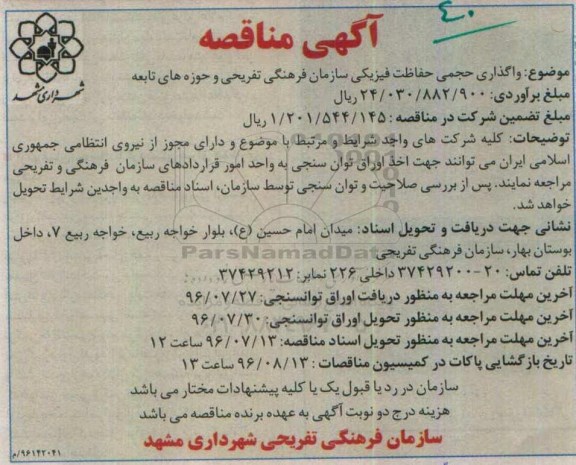 ۴۰
آگهی مناقصه
شهرداری مشهد
موضوع: واگذاری حجمی حفاظت فیزیکی سازمان فرهنگی تفریحی و حوزه های تابعه
مبلغ برآوردی: ۲۴/۰۳۰/۸۸۲/۹۰۰ ریال
مبلغ تضمین شرکت در مناقصه : ۱/۲۰۱/۵۴۴/۱۴۵ ریال
توضیحات: کلیه شرکت های واجد شرایط و مرتبط با موضوع و دارای مجوز از نیروی انتظامی جمهوری
اسلامی ایران می توانند جهت اخذ اوراق توان سنجی به واحد امور قراردادهای سازمان فرهنگی و تفریحی
مراجعه نمایند. پس از بررسی صلاحیت و توان سنجی توسط سازمان، اسناد مناقصه به واجدین شرایط تحویل
خواهد شد.
نشانی جهت دریافت و تحویل اسناد: میدان امام حسین (ع)، بلوار خواجه ربیع، خواجه ربیع ۷، داخل
بوستان بهار، سازمان فرهنگی تفریحی
ParsNamadData
تلفن تماس: ۲۰-۳۷۴۲۹۲۰۰ داخلی ۲۲۶ نمابر: ۳۷۴۲۹۲۱۲
آخرین مهلت مراجعه به منظور دریافت اوراق توانسنجی: ۹۶/۰۷/۲۷
آخرین مهلت مراجعه به منظور تحویل اوراق توانسنجی: ۹۶/۰۷/۳۰
آخرین مهلت مراجعه به منظور تحویل اسناد مناقصه: ۹۶/۰۷/۱۳ ساعت ۱۲
تاریخ بازگشایی پاکات در کمیسیون مناقصات : ۹۶/۰۸/۱۳ ساعت ۱۳
سازمان در رد یا قبول یک یا کلیه پیشنهادات مختار می باشد
هزینه درج دو نوبت آگهی به عهده برنده مناقصه می باشد
سازمان فرهنگی تفریحی شهرداری مشهد
۹۶۱۴۲۰۴۱/م